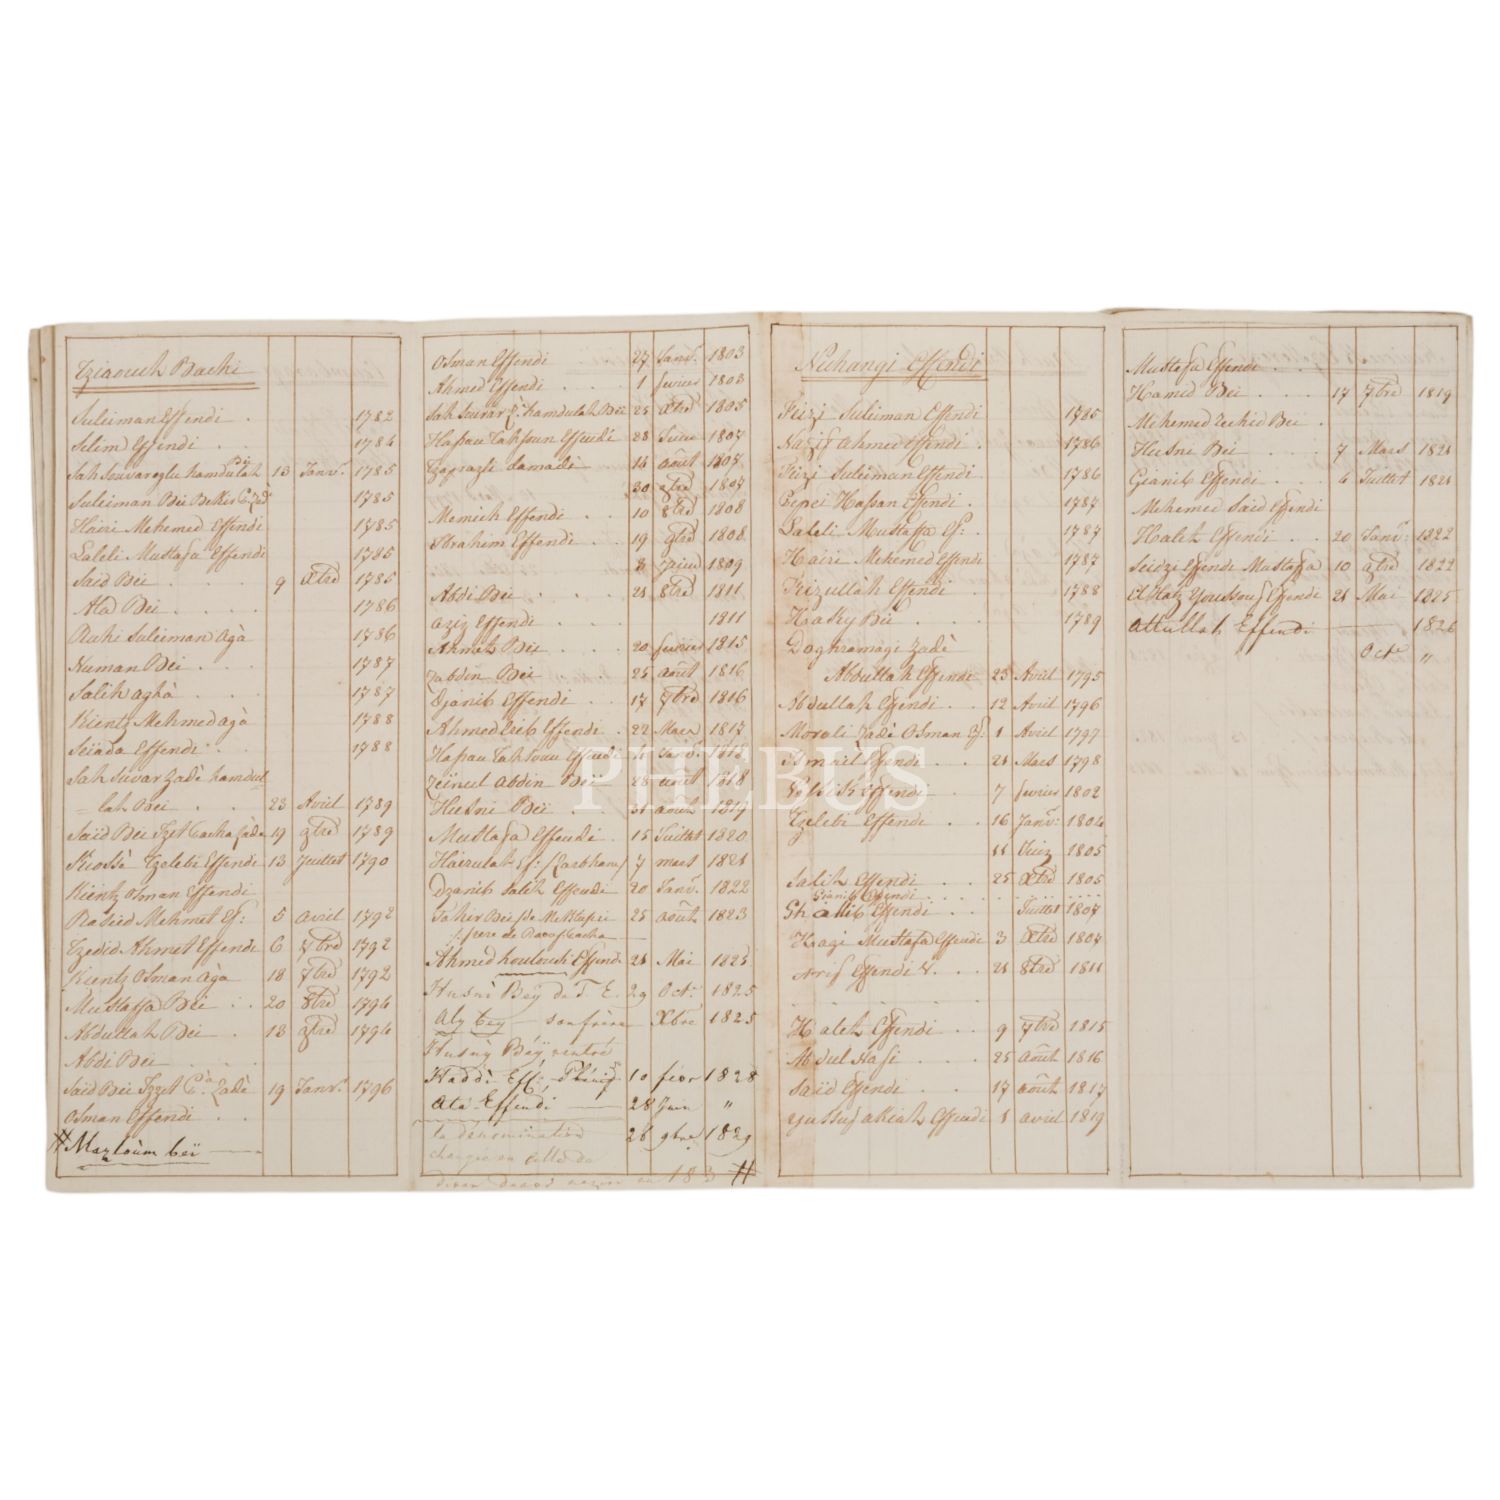 Tziaouch Bachi
Suleiman Effendi . 1782
Selim Effendi . 1784
Sah Souvaroglu hamdulah Bei 13 Janvr. 1785
Suleiman Bei Bekir 1785
Hairi Mehemed Effendi 1785
Laleli Mustafa Effendi 1785
Said Bei . . . 9 Xbre 1785
Ata Bei . . . . 1786
Ruhi Suleiman Agà 1786
Numan Bei . . . 1787
Salih aghà . . . 1787
Kientz Mehmed agà 1788
Seïada Effendi . . 1788
Sah Suvar Zadè hamdul
= lah Bei . . 23 Avril 1789
Saïd Bei Izet Pacha Zade 19 9bre 1789
Kiossè Tzelebi Effendi 13 Juillet 1790
Kientz Osman Effendi
Rashid Mehmet Ef: 5 avril 1792
Tzedid Ahmet Effendi 6 7bre 1792
Kientz Osman Aga 18 7bre 1792
Mustaffa Bei . . 20 8bre 1794
Abdullah Bei . . 18 9bre 1794
Abdi Bei . . . .
Saïd Bei Izzet Pa. Zadè 19 Janvr. 1796
Osman Effendi . .
# Mazloùm beï
Osman Effendi . . 27 Janvr. 1803
Ahmed Effendi . . . 1 fevrier 1803
Sah Souvar Z: hamdulah Beï 25 Xbre 1805
Hassan Tahsoun Effendi 28 Juin 1807
Tzaprazli damadi 14 août 1807
30 9bre 1807
Memich Effendi . . 10 8bre 1808
Ibrahim Effendi . . 19 9bre 1808
3 Juin 1809
Abdi Bei . . . . 21 8bre 1811
Aziz Effendi . . . 1811
Ahmet Beï . . . 20 fevrier 1815
Zabdin Bei . . 25 août 1816
Djanib Effendi . . . 17 7bre 1816
Ahmed Erib Effendi . 22 Mars 1817
Hassan Tahsoun Effendi Janv.
Zeïnul Abdin Beï 28 août 1818
Husni Beï . . 31 août 1819
Mustafa Effendi . 15 Juillet 1820
Haïrulah Ef: (Zarbhane) 7 mars 1821
Dzanib Salih Effendi 20 Janvr. 1822
Tahir Bei 25 août 1823
frere de Raouf Pacha
Ahmed houlousi Effendi 21 Mai 1825
Husni Beÿ de T. E. 29 Oct. 1825
Aly bey — son frère Xbre 1825
Husny Bëÿ, rentré
Haddi Eff: 10 fevr 1828
Atà Effendi — 28 Juin "
la dénomination 26 9bre 1829
changée en celle de
divan 183 #
Nichangi Effendi
Feizi Suleiman Effendi 1785
Nazif Ahmed Effendi . 1786
Feizi Suleiman Effendi . 1786
Cepei Hassan Effendi . 1787
Laleli Mustaffa Ef: . 1787
Haïri Mehemed Effendi 1787
Feizullah Effendi . 1788
Hraky Beï . . . . 1789
Doghramagi Zadè
Abdullah Effendi 23 Avril 1795
Abdullah Effendi . . 12 Avril 1796
Morali Zadè Osman Ef. 1 Avril 1797
Ismaïl Effendi . . 21 Mars 1798
Effendi . 7 fevrier 1802
Tzelebi Effendi . . 16 Janvr: 1804
11 Juin 1805
Salih Effendi . . 25 Xbre 1805
Gianib Effendi . . . . . .
Ghalib Effendi . . . Juillet 1807
Hragi Mustafa Effendi 3 Xbre 1807
Arif Effendi . . . 21 8bre 1811
. . . . .
Halet Effendi . . 9 7bre 1815
Abdul Hafi . . . 25 août 1816
Saïd Effendi . . 17 août 1817
Yussuf akiah Effendi 1 avril 1819
Mustafa Effendi . . .
Hamid Bei . . . 17 7bre 1819
Mehemed Bei .
Husni Bei . . . 7 Mars 1821
Gianib Effendi . . . 4 Juillet 1821
Mehemed Said Effendi
Halet Effendi . . 20 Janvr: 1822
Seidzi Effendi Mustaffa 10 9bre 1822
El Hatz Youssouf Effendi 21 Mai 1825
Attullah Effendi — 1826
Octe "
PHEBUS